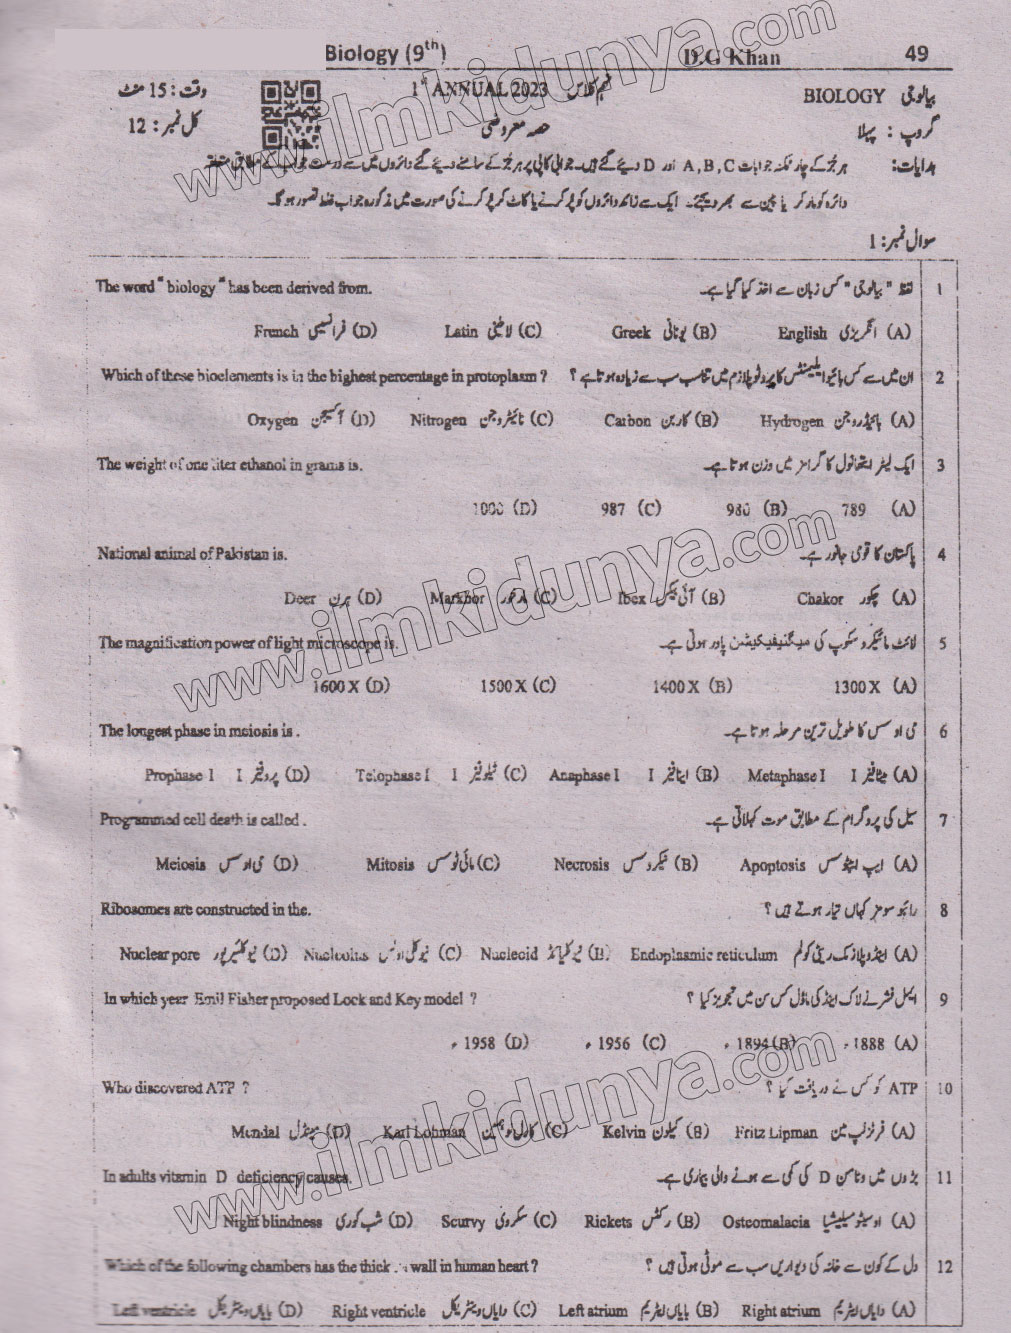 Biology (9th) D.G Khan 49
وقت : 15 منٹ 1st ANNUAL 2023 نہم کلاس BIOLOGY بیالوجی
کل نمبر : 12 حصہ معروضی گروپ : پہلا
ہدایات: ہر جُز کے چار ممکنہ جوابات A, B, C اور D دیئے گئے ہیں۔ جوابی کاپی پر ہر جُز کے سامنے دیئے گئے دائروں میں سے درست جواب کے مطابق متعلقہ
دائرہ کو مارکر یا پین سے بھر دیجئے۔ ایک سے زائد دائروں کو پُر کرنے یا کاٹ کر پُر کرنے کی صورت میں مذکورہ جواب غلط تصور ہو گا۔
سوال نمبر : 1
The word " biology " has been derived from. لفظ " بیالوجی " کس زبان سے اخذ کیا گیا ہے۔ 1
(A) انگریزی English (B) یونانی Greek (C) لاطینی Latin (D) فرانسیسی French
Which of these bioelements is in the highest percentage in protoplasm ? ان میں سے کس بائیو ایلیمنٹس کا پروٹوپلازم میں تناسب سب سے زیادہ ہوتا ہے ؟ 2
(A) ہائیڈروجن Hydrogen (B) کاربن Carbon (C) نائٹروجن Nitrogen (D) آکسیجن Oxygen
The weight of one liter ethanol in grams is. ایک لیٹر ایتھانول کا گرامز میں وزن ہوتا ہے۔ 3
(A) 789 (B) 980 (C) 987 (D) 1000
National animal of Pakistan is. پاکستان کا قومی جانور ہے۔ 4
(A) چکور Chakor (B) آئی بیکس Ibex (C) مارخور Markhor (D) ہرن Deer
The magnification power of light microscope is. لائٹ مائیکروسکوپ کی میگنیفیکیشن پاور ہوتی ہے۔ 5
(A) 1300 X (B) 1400 X (C) 1500 X (D) 1600 X
The longest phase in meiosis is . می اوسس کا طویل ترین مرحلہ ہوتا ہے۔ 6
(A) میٹافیز I Metaphase I (B) اینافیز I Anaphase I (C) ٹیلوفیز I Telophase I (D) پروفیز I Prophase I
Programmed cell death is called . سیل کی پروگرام کے مطابق موت کہلاتی ہے۔ 7
(A) ایپ اپٹوسس Apoptosis (B) نیکروسس Necrosis (C) مائی ٹوسس Mitosis (D) می اوسس Meiosis
Ribosomes are constructed in the. رائبوسومز کہاں تیار ہوتے ہیں ؟ 8
(A) اینڈوپلازمک ریٹی کولم Endoplasmic reticulum (B) نیوکلیائڈ Nucleoid (C) نیوکلی اولس Nucleolus (D) نیوکلیئر پور Nuclear pore
In which year Emil Fisher proposed Lock and Key model ? ایمل فشر نے لاک اینڈ کی ماڈل کس سن میں تجویز کیا ؟ 9
(A) 1888ء (B) 1894ء (C) 1956ء (D) 1958ء
Who discovered ATP ? ATP کو کس نے دریافت کیا ؟ 10
(A) فرٹز لپ مین Fritz Lipman (B) کیلون Kelvin (C) کارل لوہمین Karl Lohman (D) مینڈل Mendal
In adults vitamin D deficiency causes. بڑوں میں وٹامن D کی کمی سے ہونے والی بیماری ہے۔ 11
(A) اوسٹیو ملیشیا Osteomalacia (B) رکٹس Rickets (C) سکروی Scurvy (D) شب کوری Night blindness
Which of the following chambers has the thick wall in human heart ? دل کے کون سے خانہ کی دیواریں سب سے موٹی ہوتی ہیں ؟ 12
(A) دایاں ایٹریم Right atrium (B) بایاں ایٹریم Left atrium (C) دایاں وینٹریکل Right ventricle (D) بایاں وینٹریکل Left ventricle
www.ilmkidunya.com
www.ilmkidunya.com
www.ilmkidunya.com